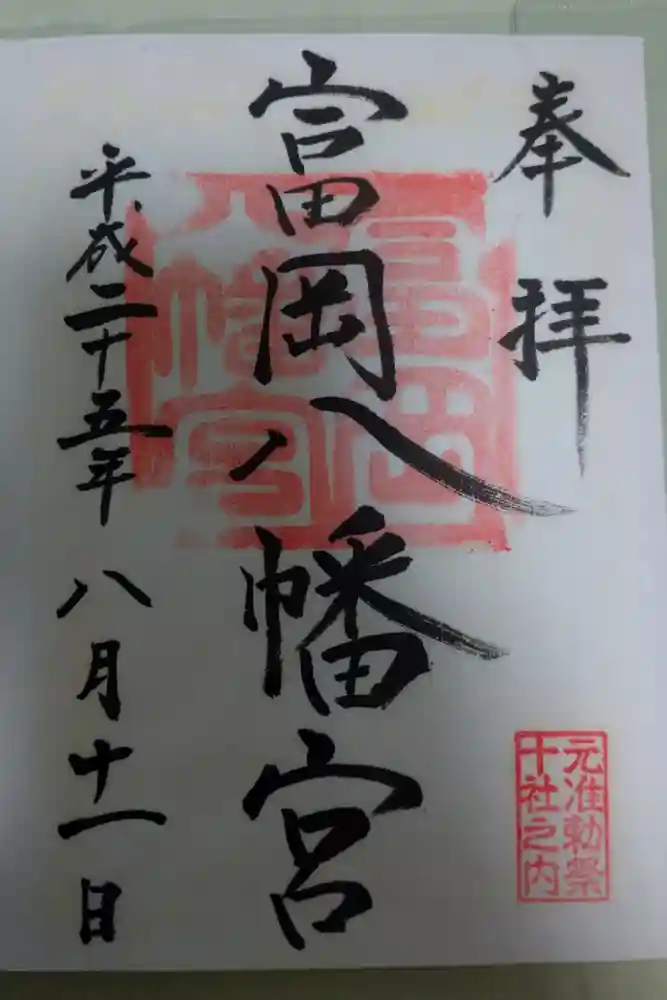 奉拝
富岡八幡宮
平成二十五年 八月十一日
富岡
八幡宮
元准勅祭
十社之内